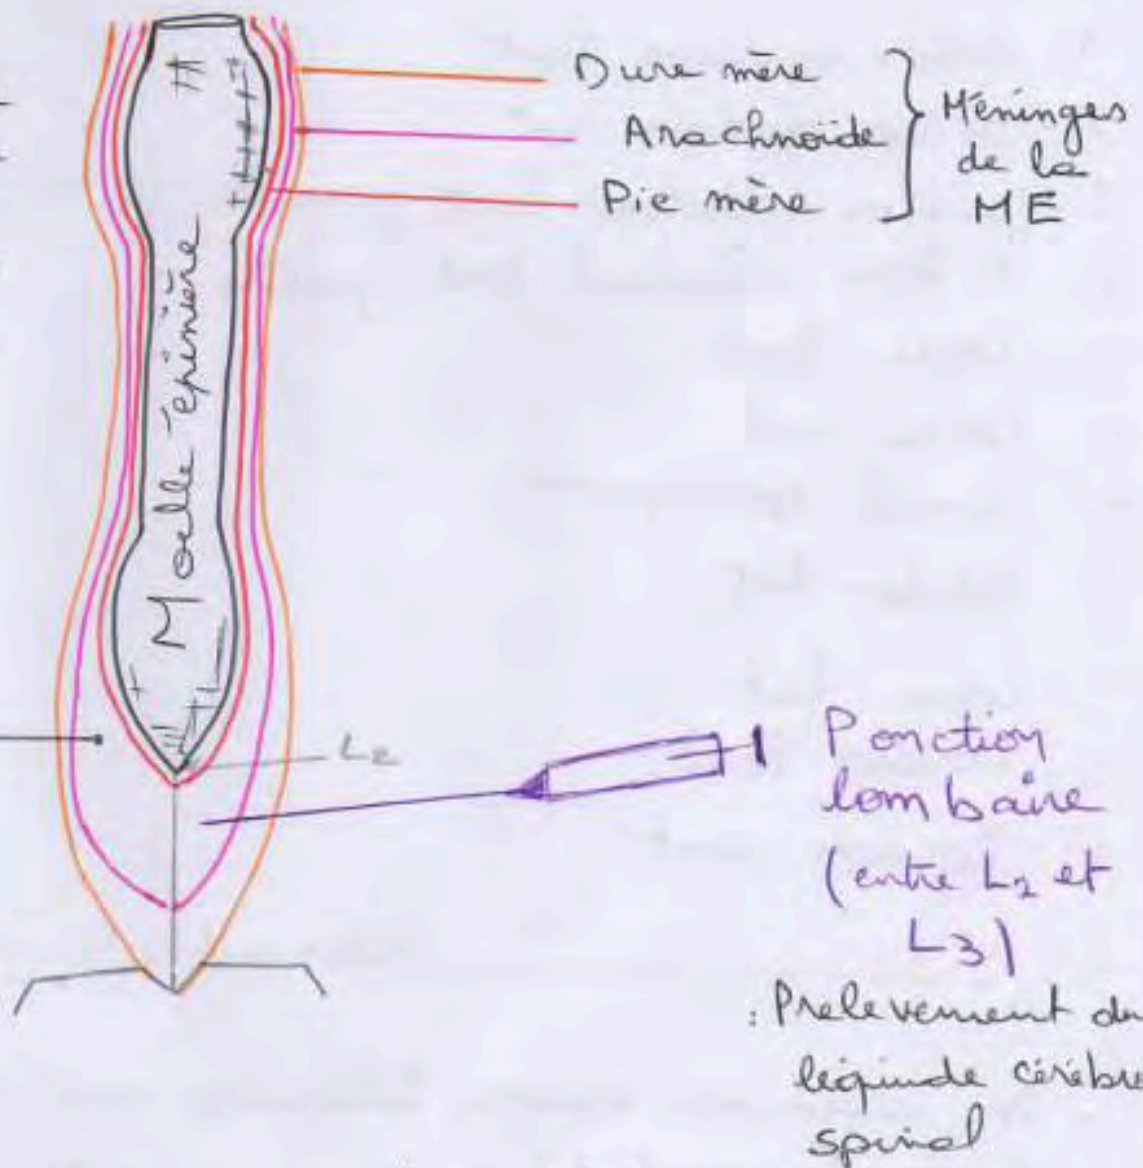 Dure mère
Arachnoïde
Pie mère
Méninges
de la
ME
Moelle épinière
L2
Ponction
lombaire
(entre L2 et
L3)
: Prelevement du
liquide cérébro
spinal